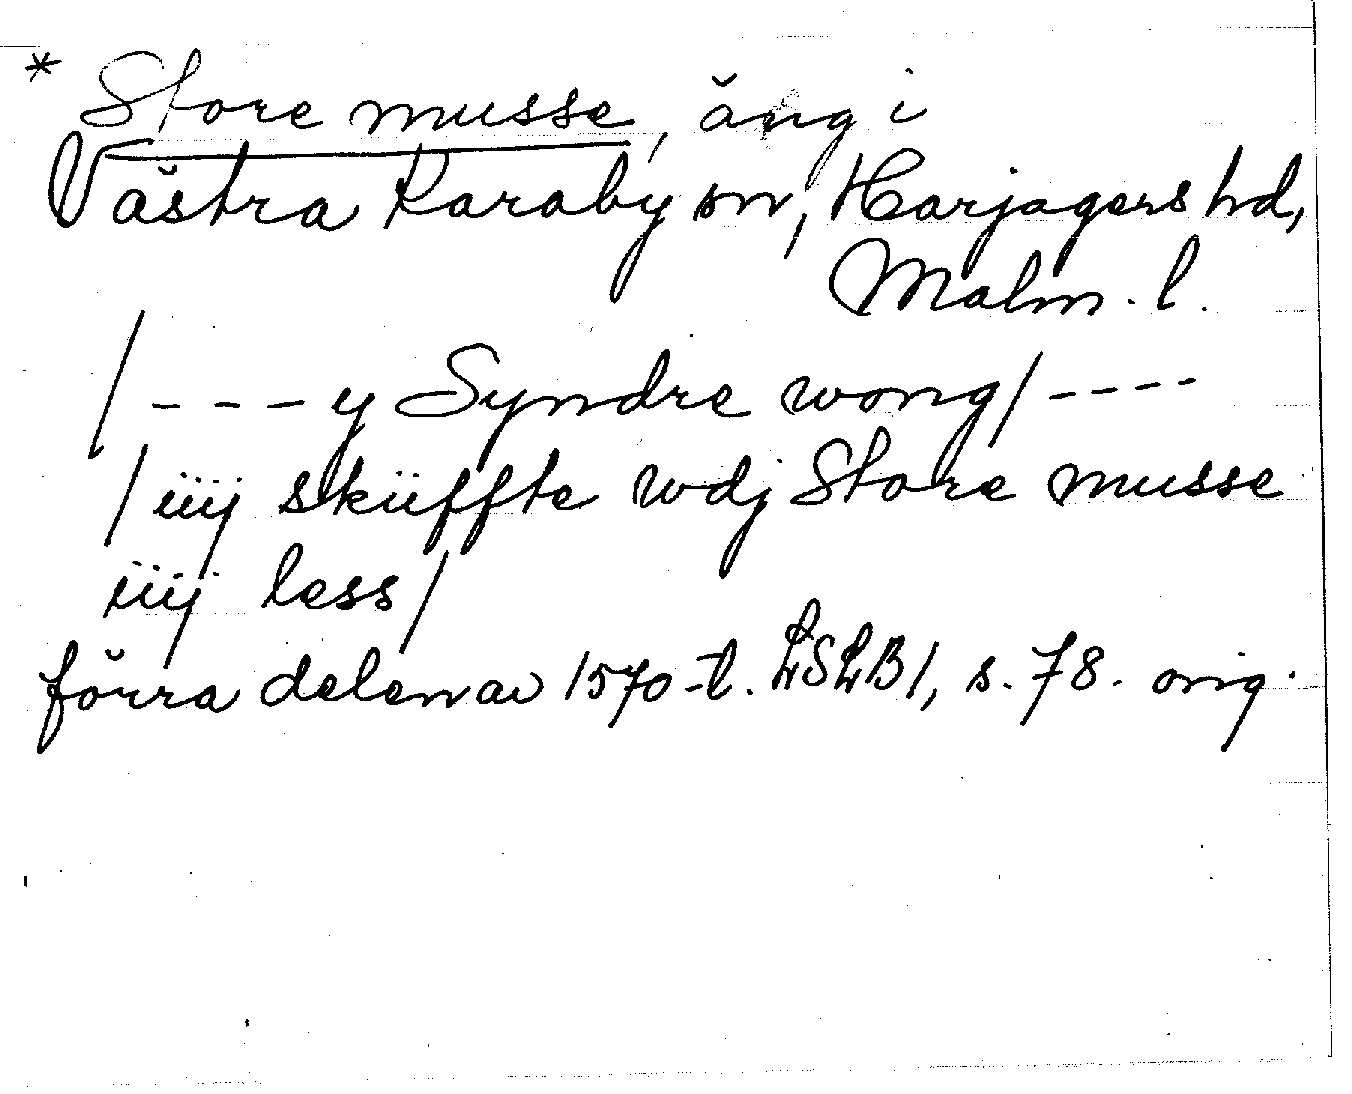 * Store musse, äng i
Västra Karaby sn, Harjagers hd,
Malm. l.
/ - - - y Syndre wong / - - - -
/ iiij sküffte wdj Store musse
iiij less /
förra delen av 1570-t. LSLB1, s. 78. orig.